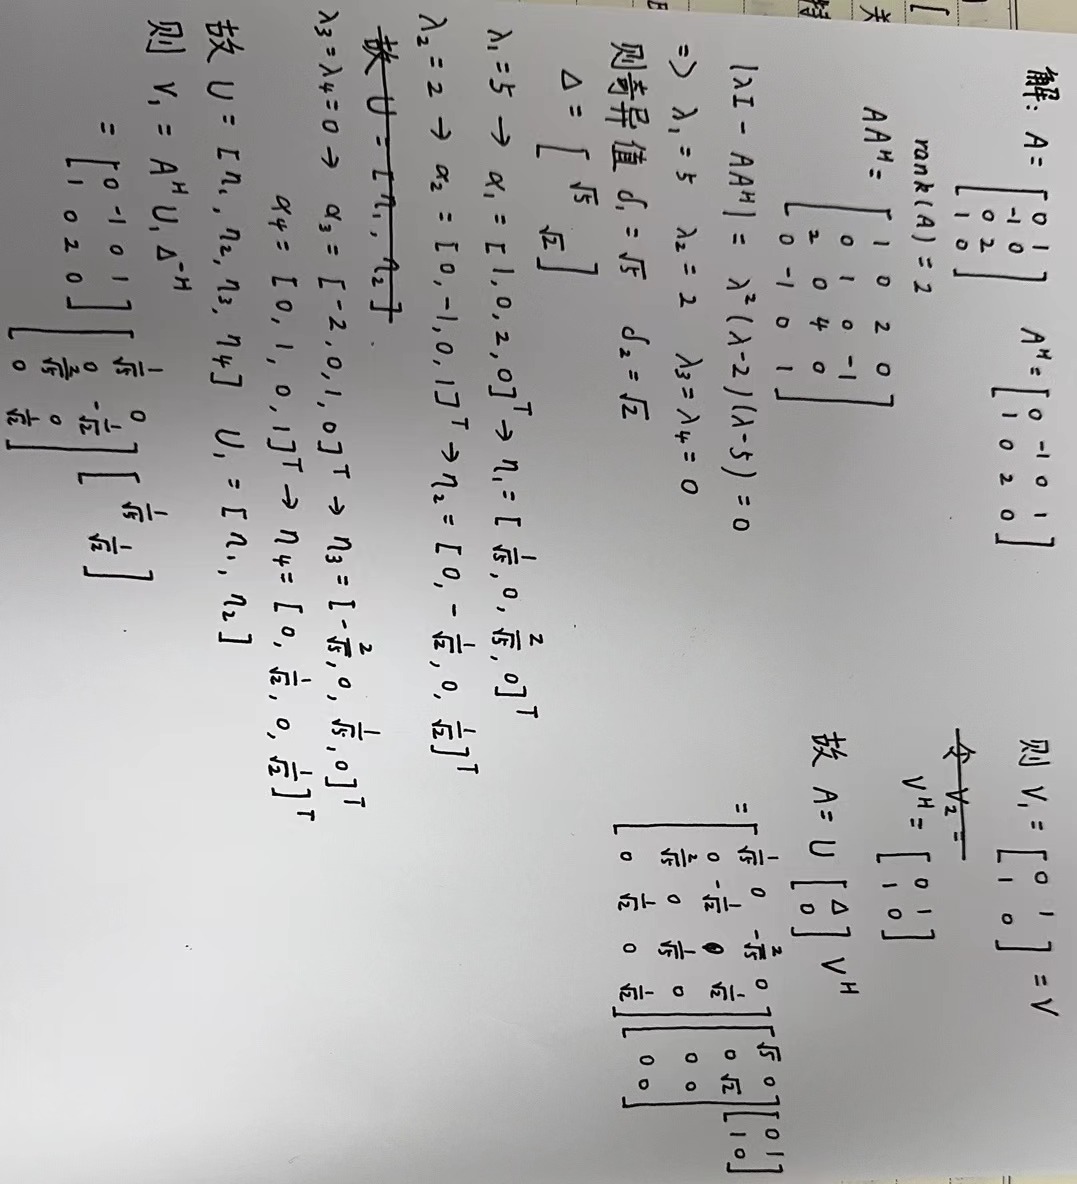 解: A = [0 1; -1 0; 0 2; 1 0] A^H = [0 -1 0 1; 1 0 2 0]
rank(A) = 2
AA^H = [1 0 2 0; 0 1 0 -1; 2 0 4 0; 0 -1 0 1]
|λI - AA^H| = λ²(λ-2)(λ-5) = 0
=> λ₁ = 5 λ₂ = 2 λ₃ = λ₄ = 0
则奇异值 δ₁ = √5 δ₂ = √2
Δ = [√5 √2]
λ₁ = 5 → α₁ = [1, 0, 2, 0]^T → η₁ = [1/√5, 0, 2/√5, 0]^T
λ₂ = 2 → α₂ = [0, -1, 0, 1]^T → η₂ = [0, -1/√2, 0, 1/√2]^T
故 U = [η₁, η₂]
λ₃ = λ₄ = 0 → α₃ = [-2, 0, 1, 0]^T → η₃ = [-2/√5, 0, 1/√5, 0]^T
α₄ = [0, 1, 0, 1]^T → η₄ = [0, 1/√2, 0, 1/√2]^T
故 U = [η₁, η₂, η₃, η₄] U₁ = [η₁, η₂]
则 V₁ = A^H U₁ Δ^-H
= [0 -1 0 1; 1 0 2 0] [1/√5 0; 0 -1/√2; 2/√5 0; 0 1/√2] [1/√5 1/√2]
则 V₁ = [0 1; 1 0] = V
令 V₂ =
V^H = [0 1; 1 0]
故 A = U [Δ; 0] V^H
= [1/√5 0 -2/√5 0; 0 -1/√2 0 1/√2; 2/√5 0 1/√5 0; 0 1/√2 0 1/√2] [√5 0; 0 √2; 0 0; 0 0] [0 1; 1 0]